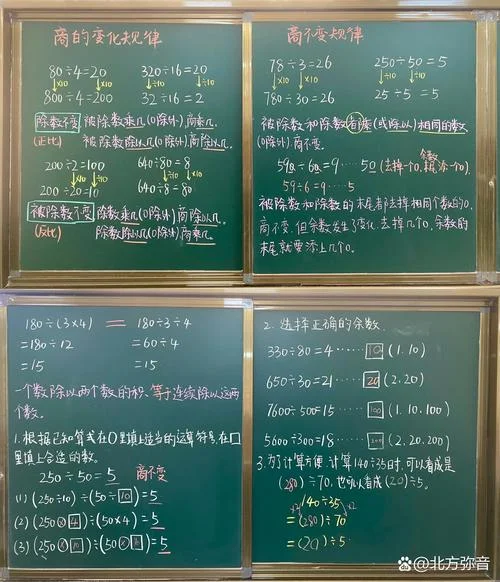 商的变化规律
80÷4=20 320÷16=20
↓×10 ↓×10 ↓÷10 ↓÷10
800÷4=200 32÷16=2
除数不变 被除数乘几(0除外)商乘几.
(正比) 被除数除以几(0除外)商除以几
200÷2=100 640÷80=8
↓×10 ↓÷10
200÷20=10 640÷8=80
被除数不变 除数乘几(0除外)商除以几.
(反比) 除数除以几(0除外)商乘几.
商不变规律
78÷3=26 250÷50=5
↓×10 ↓×10 ↓÷10 ↓÷10
780÷30=26 25÷5=5
被除数和除数同时乘(或除以)相同的数
(0除外)商不变.
590÷60=9……50 (去掉一个0,余数添一个0)
59÷6=9……5
被除数和除数的末尾都去掉相同个数的0.
商不变.但余数发生了变化.去掉几个0.余数的
末尾就要添上几个0.
180÷(3×4) = 180÷3÷4
=180÷12 =60÷4
=15 =15
一个数除以两个数的积.等于连续除以这两
个数.
1.根据已知算式在○里填上适当的运算符号,在□
里填上合适的数.
250÷50=5 商不变
(1) (250÷10)÷(50÷10)=5
(2) (250×4)÷(50×4)=5
2.选择正确的余数.
330÷80=4……10 (1.10)
650÷30=21……20 (2.20)
7600÷500=15……100 (1.10.100)
5600÷300=18……200 (2.20.200)
3.为了计算方便.计算140÷35时.可以看成是
(280)÷70,也可以看成(20)÷5.
140÷35
×2 ×2
=(280)÷70
=(20)÷5
北方弥音